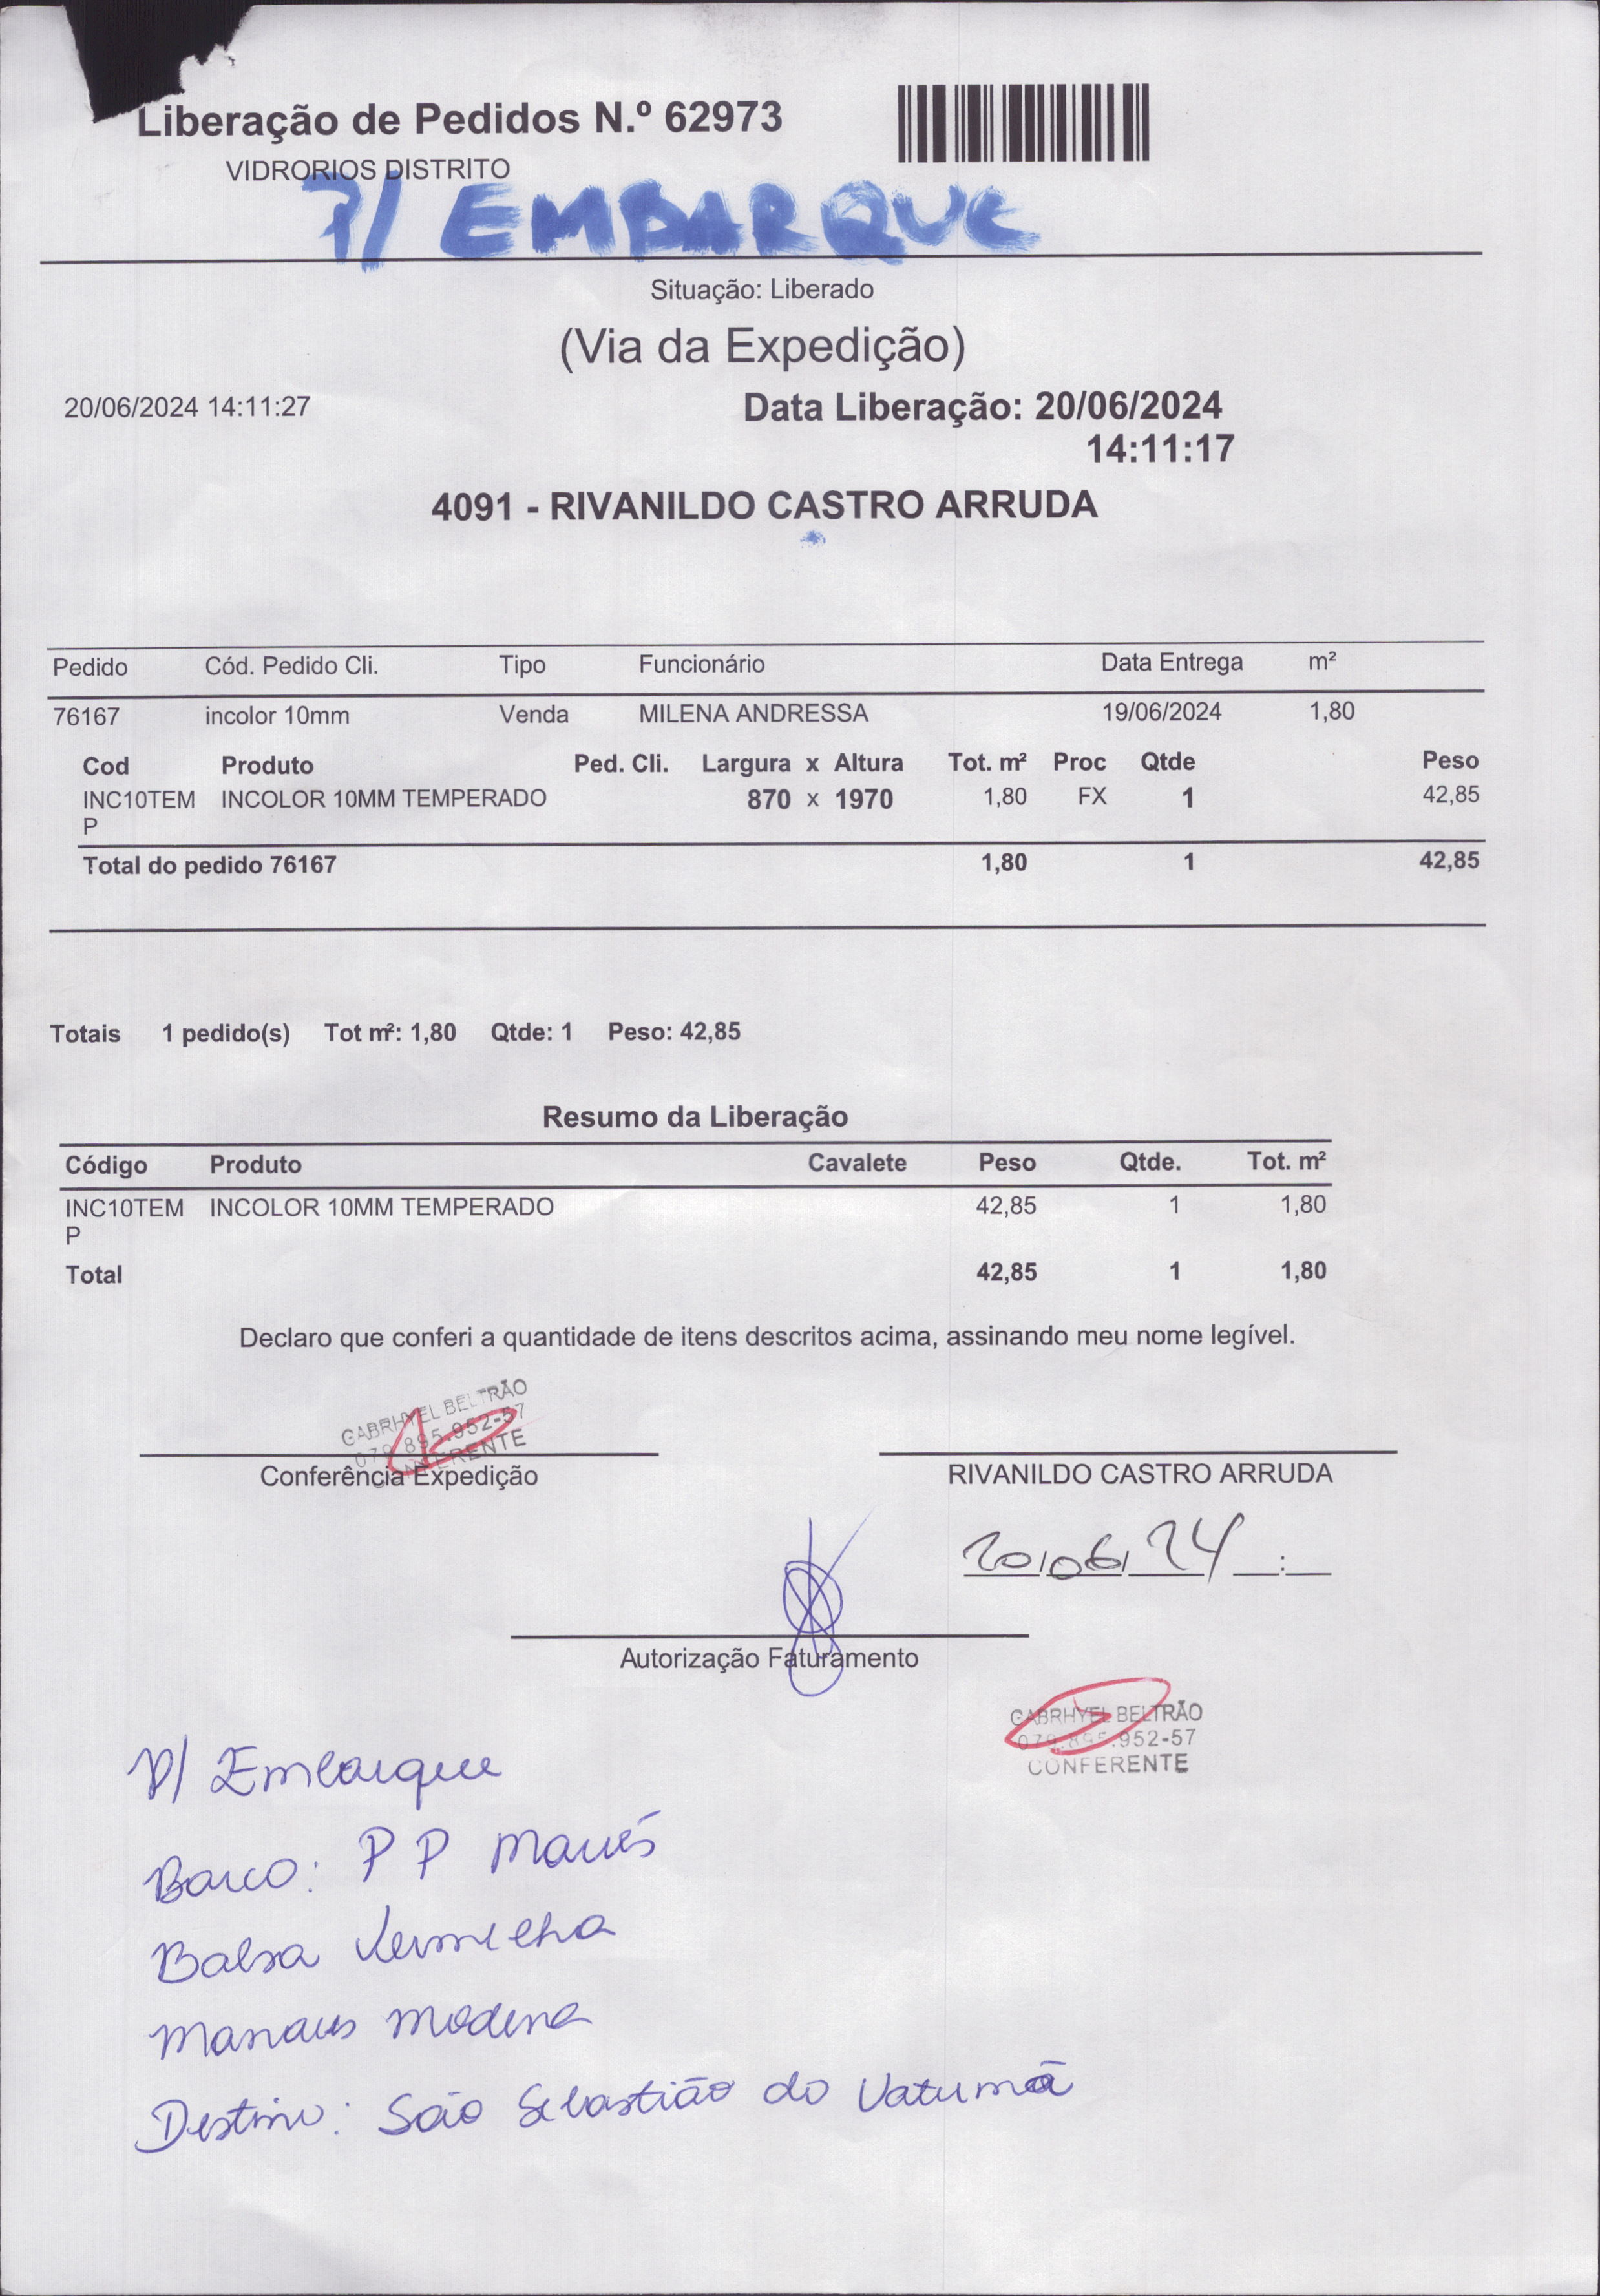 Liberação de Pedidos N.º 62973
VIDRORIOS DISTRITO
P/ EMBARQUE
Situação: Liberado
(Via da Expedição)
20/06/2024 14:11:27
Data Liberação: 20/06/2024
14:11:17
4091 - RIVANILDO CASTRO ARRUDA
Pedido Cód. Pedido Cli. Tipo Funcionário Data Entrega m²
76167 incolor 10mm Venda MILENA ANDRESSA 19/06/2024 1,80
Cod Produto Ped. Cli. Largura x Altura Tot. m² Proc Qtde Peso
INC10TEM INCOLOR 10MM TEMPERADO 870 x 1970 1,80 FX 1 42,85
P
Total do pedido 76167 1,80 1 42,85
Totais 1 pedido(s) Tot m²: 1,80 Qtde: 1 Peso: 42,85
Resumo da Liberação
Código Produto Cavalete Peso Qtde. Tot. m²
INC10TEM INCOLOR 10MM TEMPERADO 42,85 1 1,80
P
Total 42,85 1 1,80
Declaro que conferi a quantidade de itens descritos acima, assinando meu nome legível.
GABRHYEL BELTRÃO
079.895.952-57
CONFERENTE
Conferência Expedição
RIVANILDO CASTRO ARRUDA
20/06/24 __:__
Autorização Faturamento
GABRHYEL BELTRÃO
079.895.952-57
CONFERENTE
P/ Embarque
Barco: P P Maués
Balsa Vermelha
Manaus Moderna
Destino: São Sebastião do Uatumã